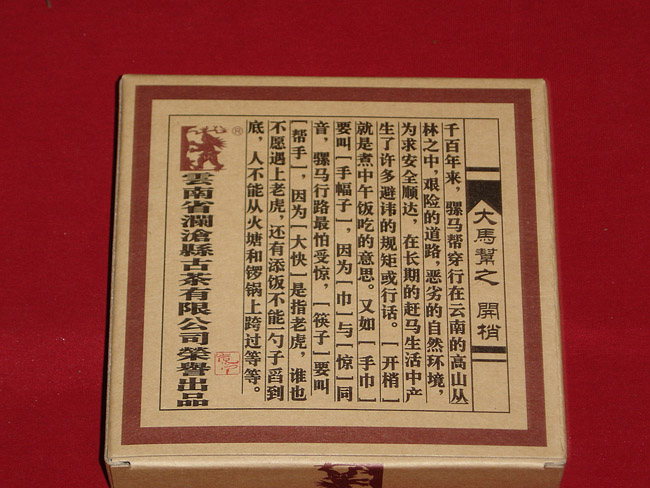 大馬幫之 開梢
千百年来，骡马帮穿行在云南的高山丛
林之中，艰险的道路，恶劣的自然环境，
为求安全顺达，在长期的赶马生活中产
生了许多避讳的规矩或行话。［开梢］
就是煮中午饭吃的意思。又如［手巾］
要叫［手幅子］，因为［巾］与［惊］同
音，骡马行路最怕受惊，［筷子］要叫
［帮手］，因为［大快］是指老虎，谁也
不愿遇上老虎，还有添饭不能一勺子舀到
底，人不能从火塘和锣锅上跨过等等。
®
雲南省瀾滄縣古茶有限公司榮譽出品